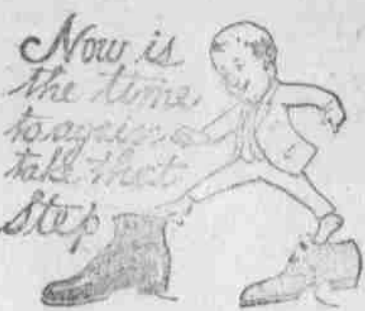 Now is
the time
to again
take that
Step